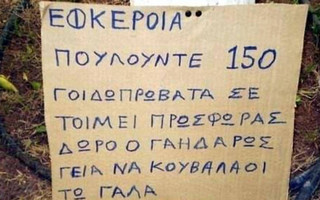 ΕΦΚΕΡΟΙΑ¨
ΠΟΥΛΟΥΝΤΕ 150
ΓΟΙΔΟΠΡΩΒΑΤΑ ΣΕ
ΤΟΙΜΕΙ ΠΡΟΣΦΩΡΑΣ
ΔΩΡΟ Ο ΓΑΗΔΑΡΩΣ
ΓΕΙΑ ΝΑ ΚΟΥΒΑΛΑΟΙ
ΤΩ ΓΑΛΑ